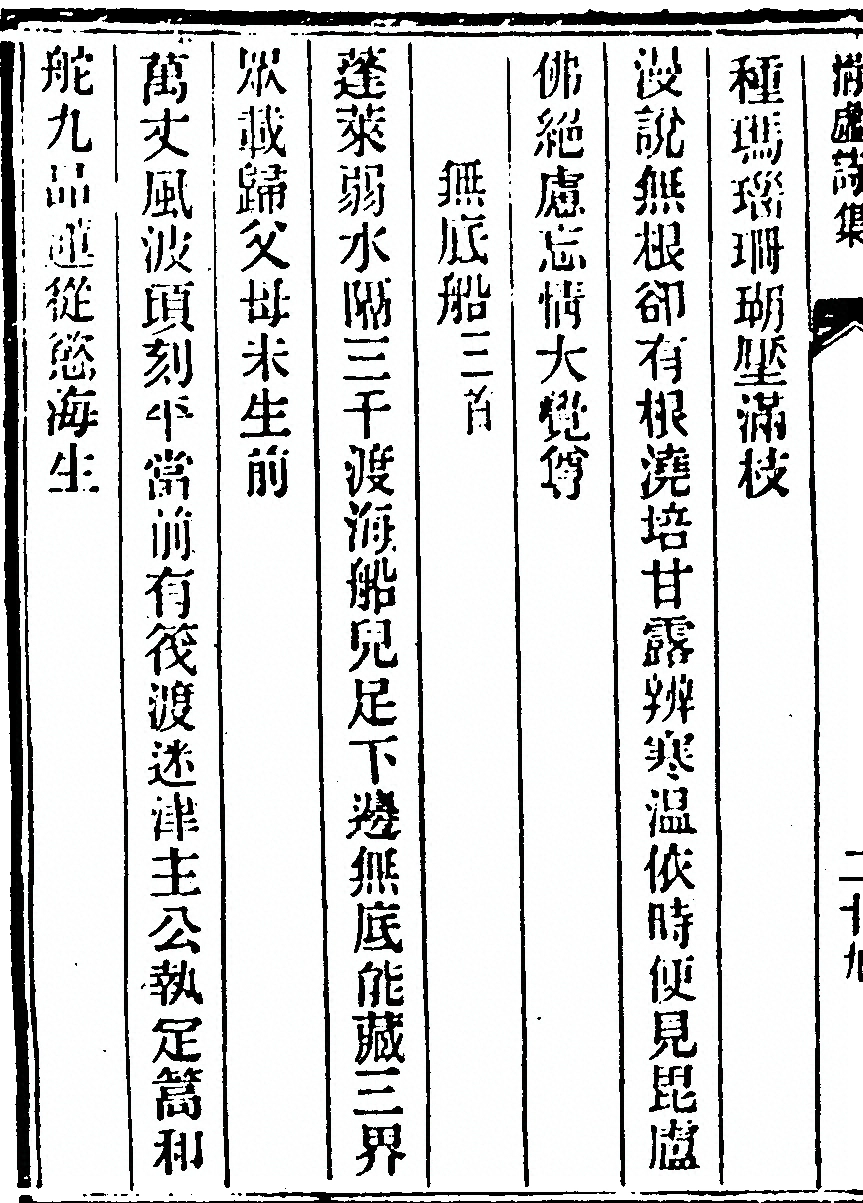 虛詩集
二十九
種瑪瑙珊瑚壓滿枝
漫說無根卻有根澆培甘露辨寒溫依時便見毘盧
佛絕慮忘情大覺尊
無底船三首
蓬萊弱水隔三千渡海船兒足下邊無底能藏三界
眾載歸父母未生前
萬丈風波頃刻平當前有筏渡迷津主公執定篙和
舵九品蓮從慾海生